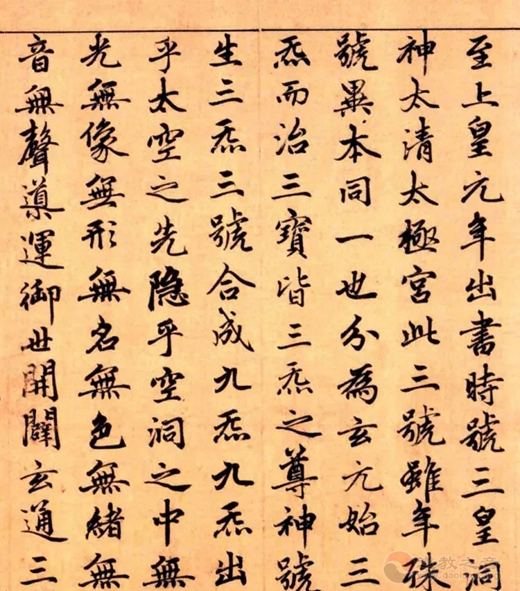 至上皇元年出書時號三皇洞
神太清太極宮此三號雖年殊
號異本同一也分為玄元始三
炁而治三寶皆三炁之尊神號
生三炁三號合成九炁九炁出
乎太空之先隱乎空洞之中無
光無像無形無名無色無緒無
音無聲導運御世開闢玄通三